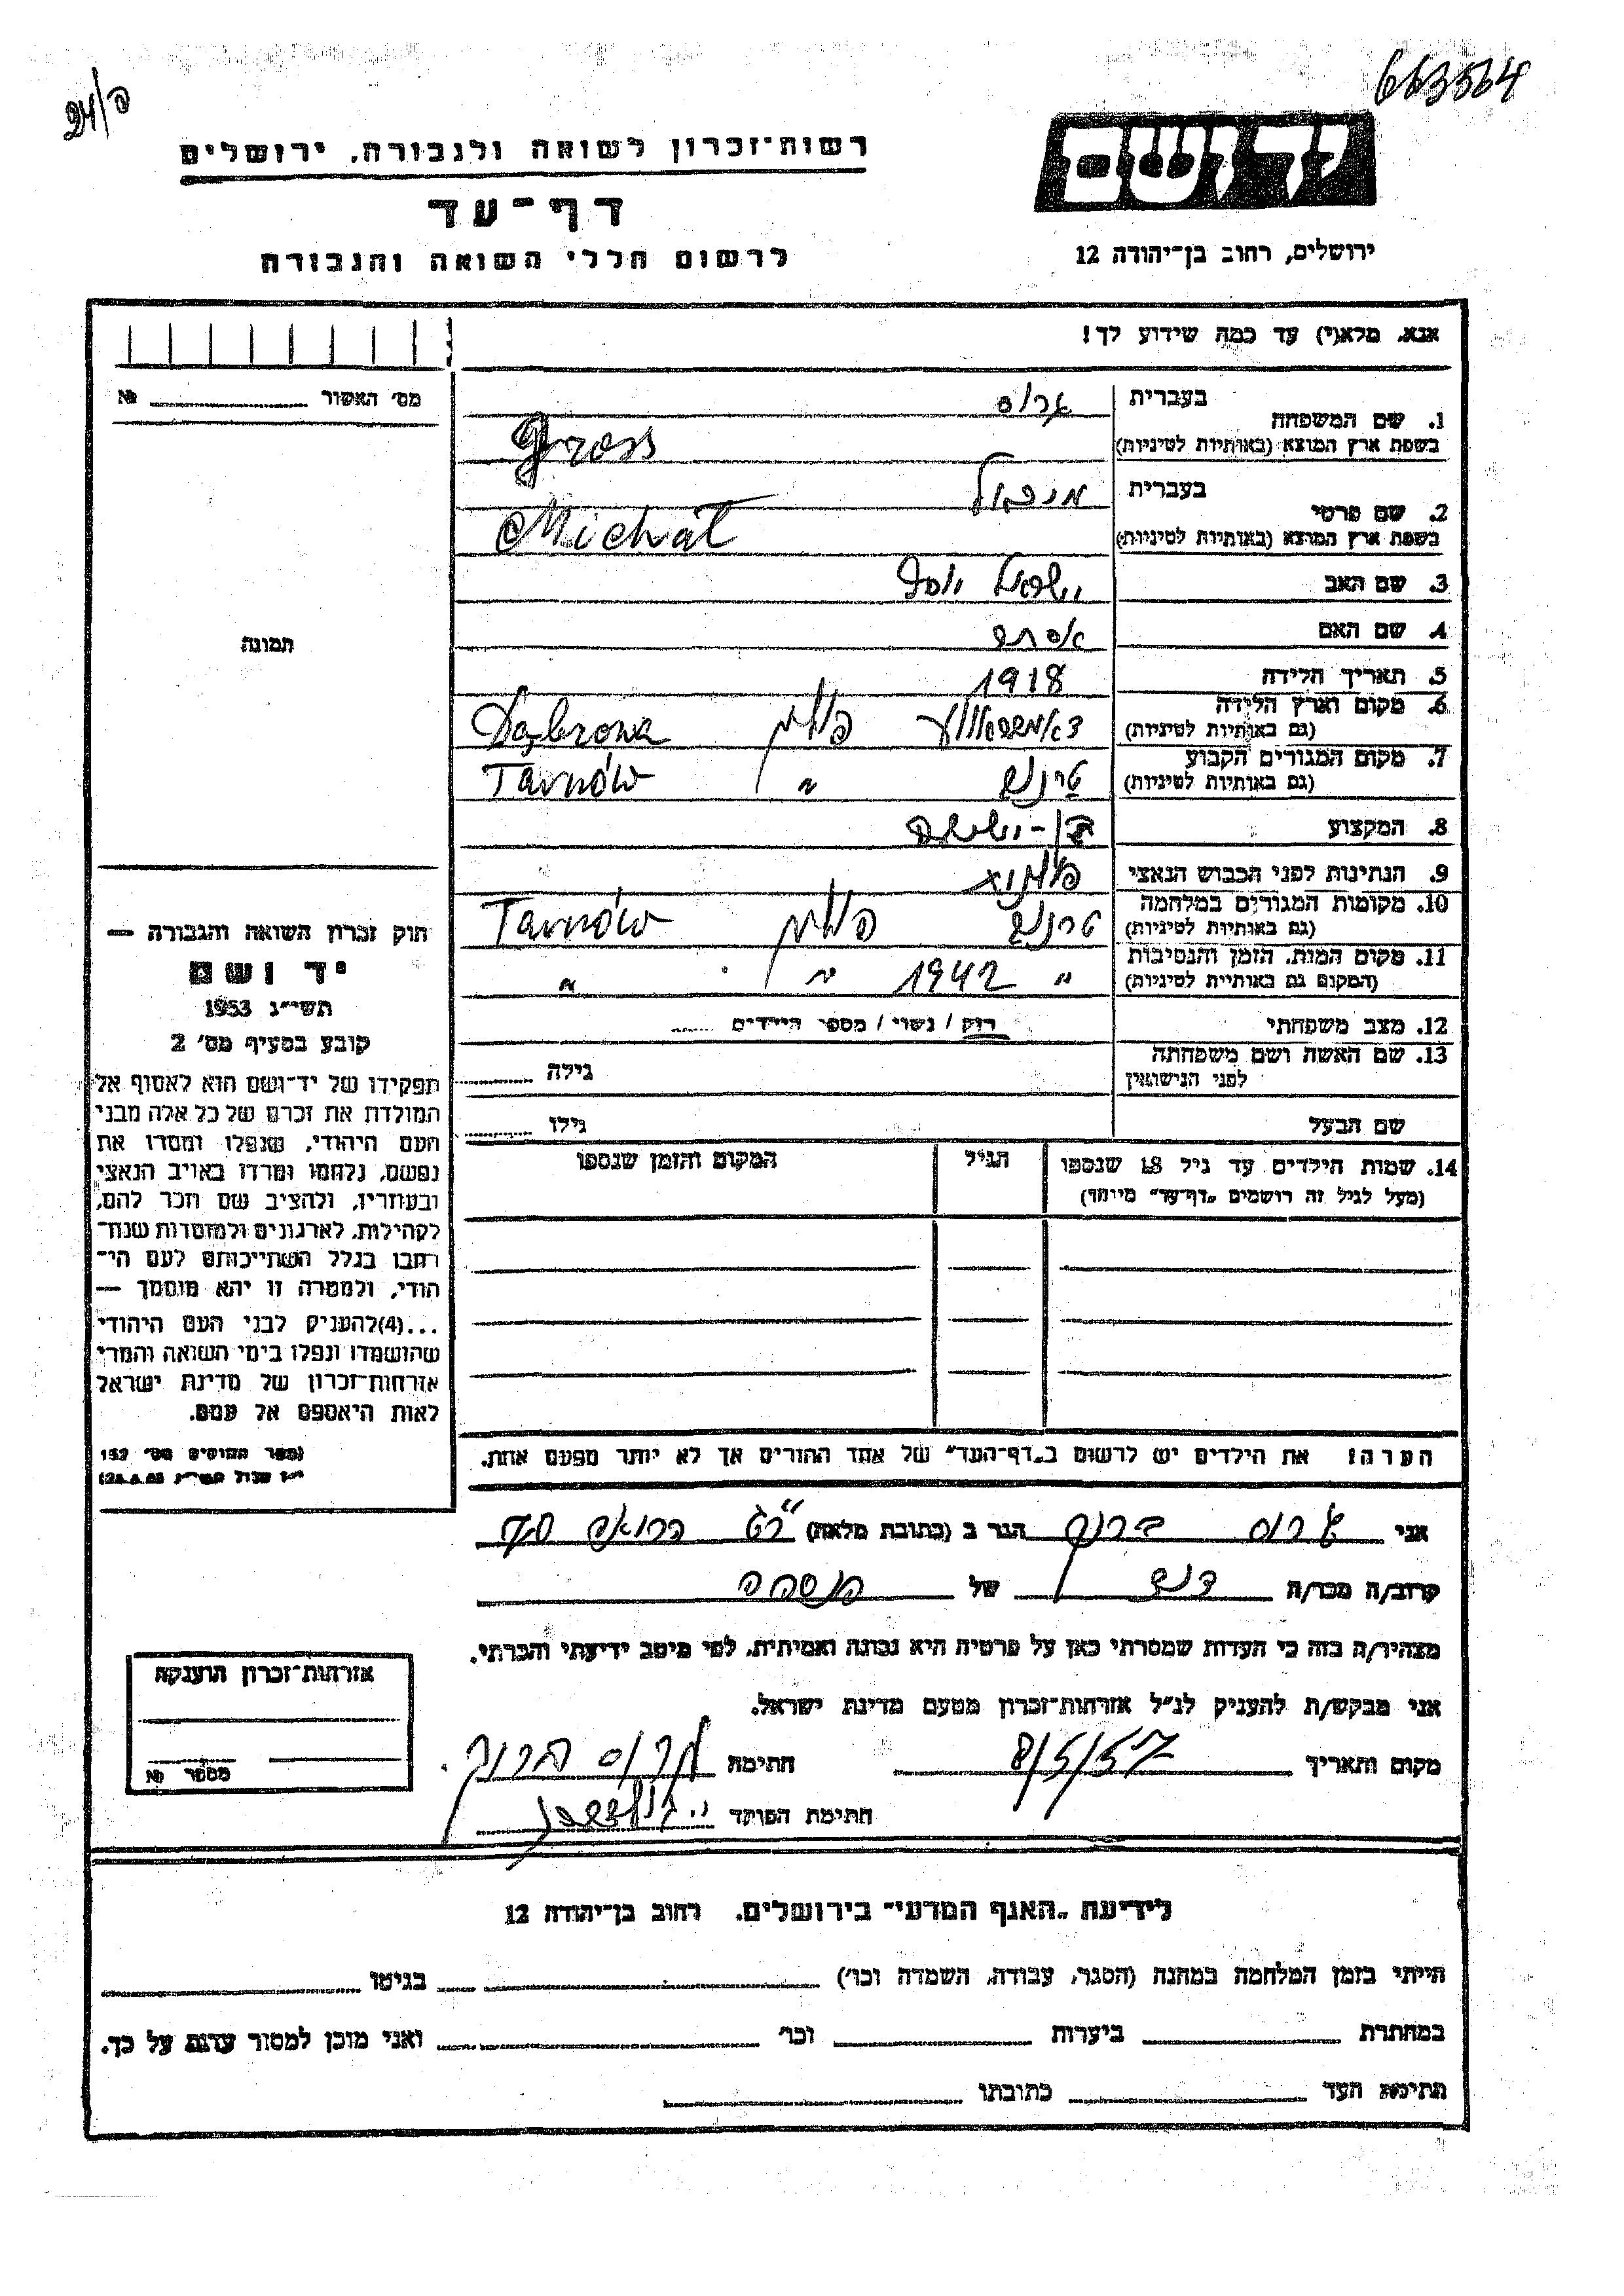 663564
24/ב
יד ושם
רשות־זכרון לשואה ולגבורה, ירושלים
דף־עד
לרשום חללי השואה והגבורה
ירושלים, רחוב בן־יהודה 12
אנא, מלא(י) עד כמה שידוע לך!
מס׳ האשור № 
1. שם המשפחה
בעברית גרוס
בשפת ארץ המוצא (באותיות לטיניות) Gross
2. שם פרטי
בעברית מיכאל
בשפת ארץ המוצא (באותיות לטיניות) Michał
3. שם האב ישראל יוסף
4. שם האם אסתר
5. תאריך הלידה 1918
6. מקום וארץ הלידה פולין Dąbrowa
(גם באותיות לטיניות)
7. מקום המגורים הקבוע טרנוב " Tarnów
(גם באותיות לטיניות)
8. המקצוע בן-ישיבה
9. הנתינות לפני הכבוש הנאצי פולנית
10. מקומות המגורים במלחמה טרנוב פולין Tarnów
(גם באותיות לטיניות)
11. מקום המות, הזמן והנסיבות " 1942 " "
(המקום גם באותיית לטיניות)
12. מצב משפחתי רוק / נשוי / מספר הילדים
13. שם האשה ושם משפחתה גילה
לפני הנישואין
שם הבעל גילו
14. שמות הילדים עד גיל 18 שנספו הגיל המקום והזמן שנספו
(מעל לגיל זה רושמים „דף־עד״ מיוחד)
הערה! את הילדים יש לרשום ב„דף־העד״ של אחד ההורים אך לא יותר מפעם אחת.
תמונה
חוק זכרון השואה והגבורה —
יד ושם
תשי״ג 1953
קובע בסעיף מס׳ 2
תפקידו של יד־ושם הוא לאסוף אל
המולדת את זכרם של כל אלה מבני
העם היהודי, שנפלו ומסרו את
נפשם, נלחמו ומרדו באויב הנאצי
ובעוזריו, ולהציב שם וזכר להם,
לקהילות, לארגונים ולמוסדות שנח־
רחבו בגלל השתייכותם לעם הי־
הודי, ולמטרה זו יהא מוסמך —
...(4)להעניק לבני העם היהודי
שהושמדו ונפלו בימי השואה והמרי
אזרחות־זכרון של מדינת ישראל
לאות היאספם אל עמם.
(ספר החוקים מס׳ 132
אני גרוס ברוך הגר ב (כתובת מלאה)
קרוב/ה מכר/ה דוד של הנספה
מצהיר/ה בזה כי העדות שמסרתי כאן על פרטיה היא נכונה ואמיתית, לפי מיטב ידיעתי והכרתי.
אני מבקש/ת להעניק לנ״ל אזרחות־זכרון מטעם מדינת ישראל.
מקום ותאריך חתימה גרוס ברוך
חתימת הפוקד
אזרחות־זכרון הוענקה
מספר №
לידיעת „האגף המדעי״ בירושלים. רחוב בן־יהודה 12
הייתי בזמן המלחמה במחנה (הסגר, עבודה, השמדה וכו׳) בגיטו
במחתרת ביערות וכו׳ ואני מוכן למסור עדות על כך.
חתימת העד כתובתו